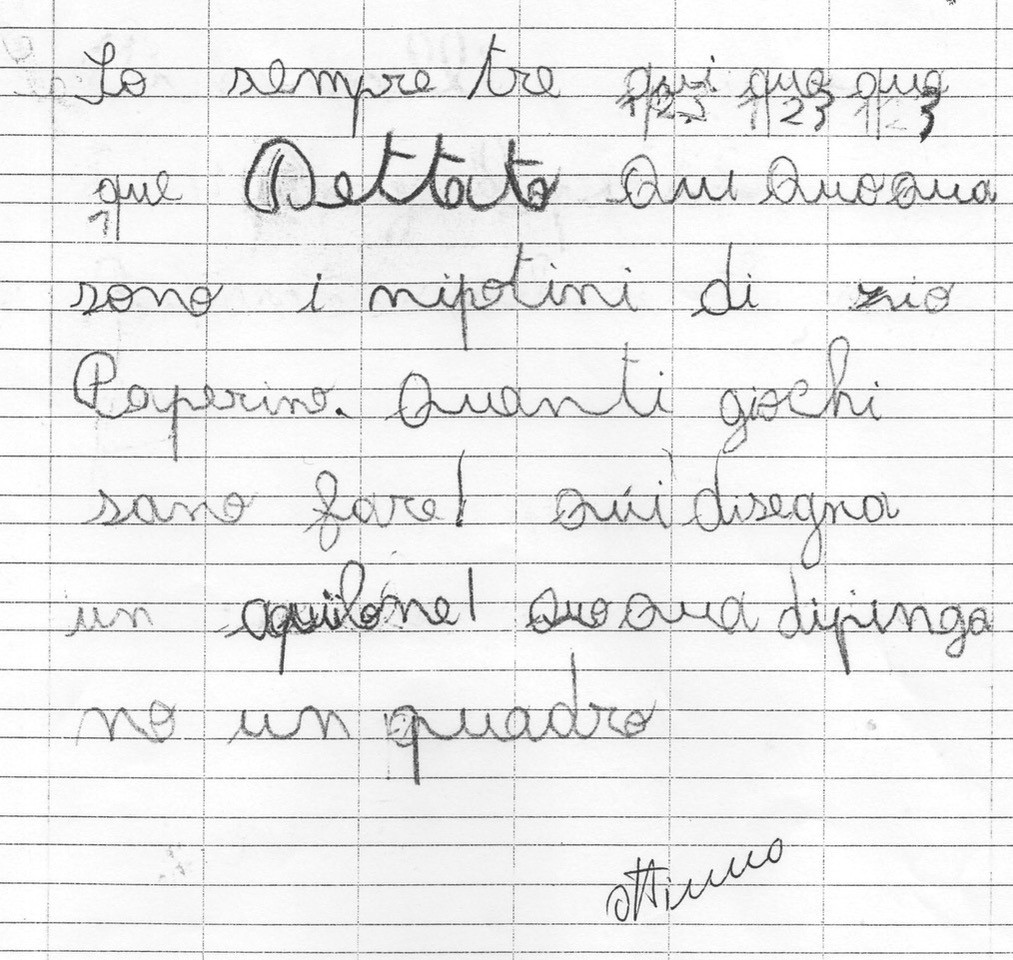 Io sempre tre qui quo qua
1 2 3 1 2 3 1 2 3
que Dettato Qui Quo Qua
1
sono i nipotini di zio
Paperino. Quanti giochi
sano fare! Qui disegna
un aquilone! Quo Qua dipinga
no un quadro
ottimo